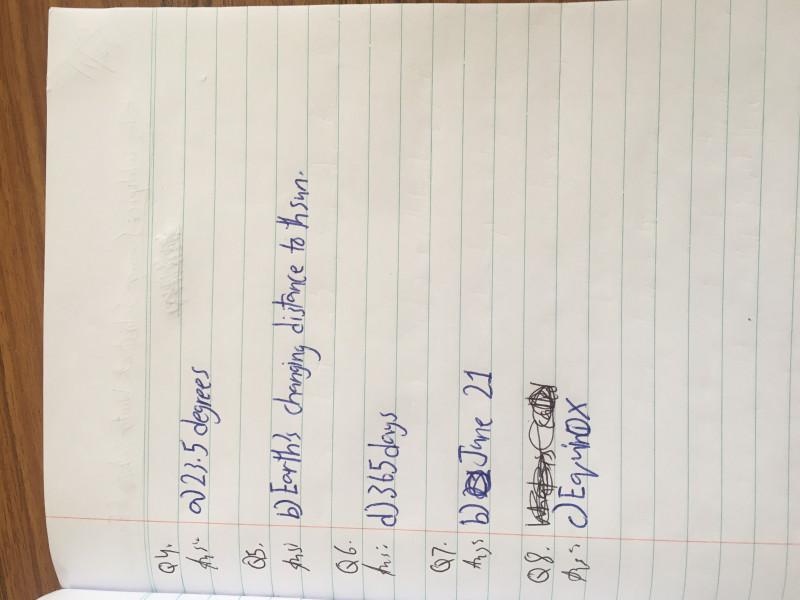 Q4.
Ans:- a) 23.5 degrees
Q5.
Ans: b) Earth's changing distance to th sun.
Q6.
Ans:- d) 365 days
Q7.
Ans b) June 21
Q8.
Ans: c) EquinOX